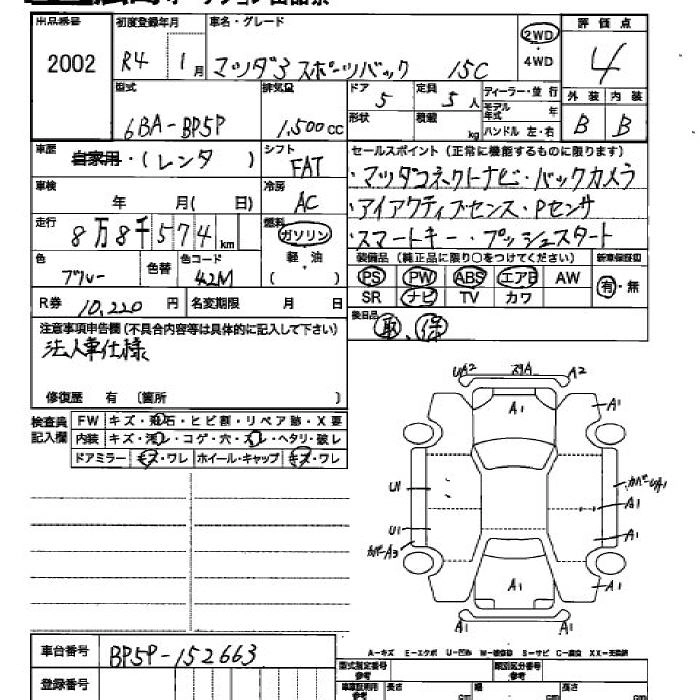 出品番号 2002
初度登録年月 R4 1月
車名・グレード マツダ3 スポーツバック 15C
2WD
・
4WD
評価点 4
外装 内装
B B
型式 6BA-BP5P
排気量 1,500cc
ドア 5
定員 5人
形状
積載 kg
ディーラー・並行
モデル年式 年
ハンドル 左・右
車歴 自家用・(レンタ )
シフト FAT
車検 年 月( 日)
冷房 AC
走行 8万8千574km
燃料 ガソリン
軽・油
( )
色 ブルー
色替
色コード 42M
R券 10,220円
名変期限 月 日
セールスポイント(正常に機能するものに限ります)
・マツダコネクトナビ・バックカメラ
・アイアクティブセンス・Pセンサ
・スマートキー・プッシュスタート
装備品(純正品に限り○をつけてください)
新車保証書
PS PW ABS エアB AW
SR ナビ TV カワ
有・無
後日品 取、保
注意事項申告欄(不具合内容等は具体的に記入して下さい)
法人車仕様
修復歴 有 〔箇所 〕
検査員記入欄
FW キズ・飛石・ヒビ割・リペア跡・X要
内装 キズ・汚レ・コゲ・穴・スレ・ヘタリ・破レ
ドアミラー キズ・ワレ ホイール・キャップ キズ・ワレ
UA2 A2
A1 A1
U1 カバーUA1
A1
U1 A1
カバーA3
A1 A1
A1 A1
A-キズ E-エクボ U-凹み W-補修跡 S-サビ C-腐食 XX-交換済
車台番号 BP5P-152663
登録番号
型式指定番号 参考
類別区分番号 参考
長さ cm 幅 cm 高さ cm